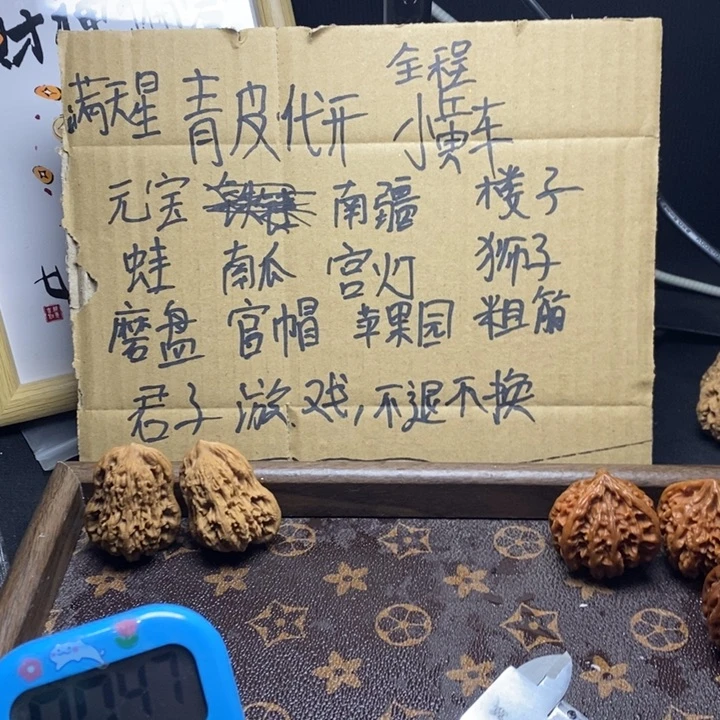 全程
满天星 青皮代开 小黄车
元宝 南疆 楼子
蛙 南瓜 宫灯 狮子
磨盘 官帽 苹果园 粗筋
君子游戏,不退不换